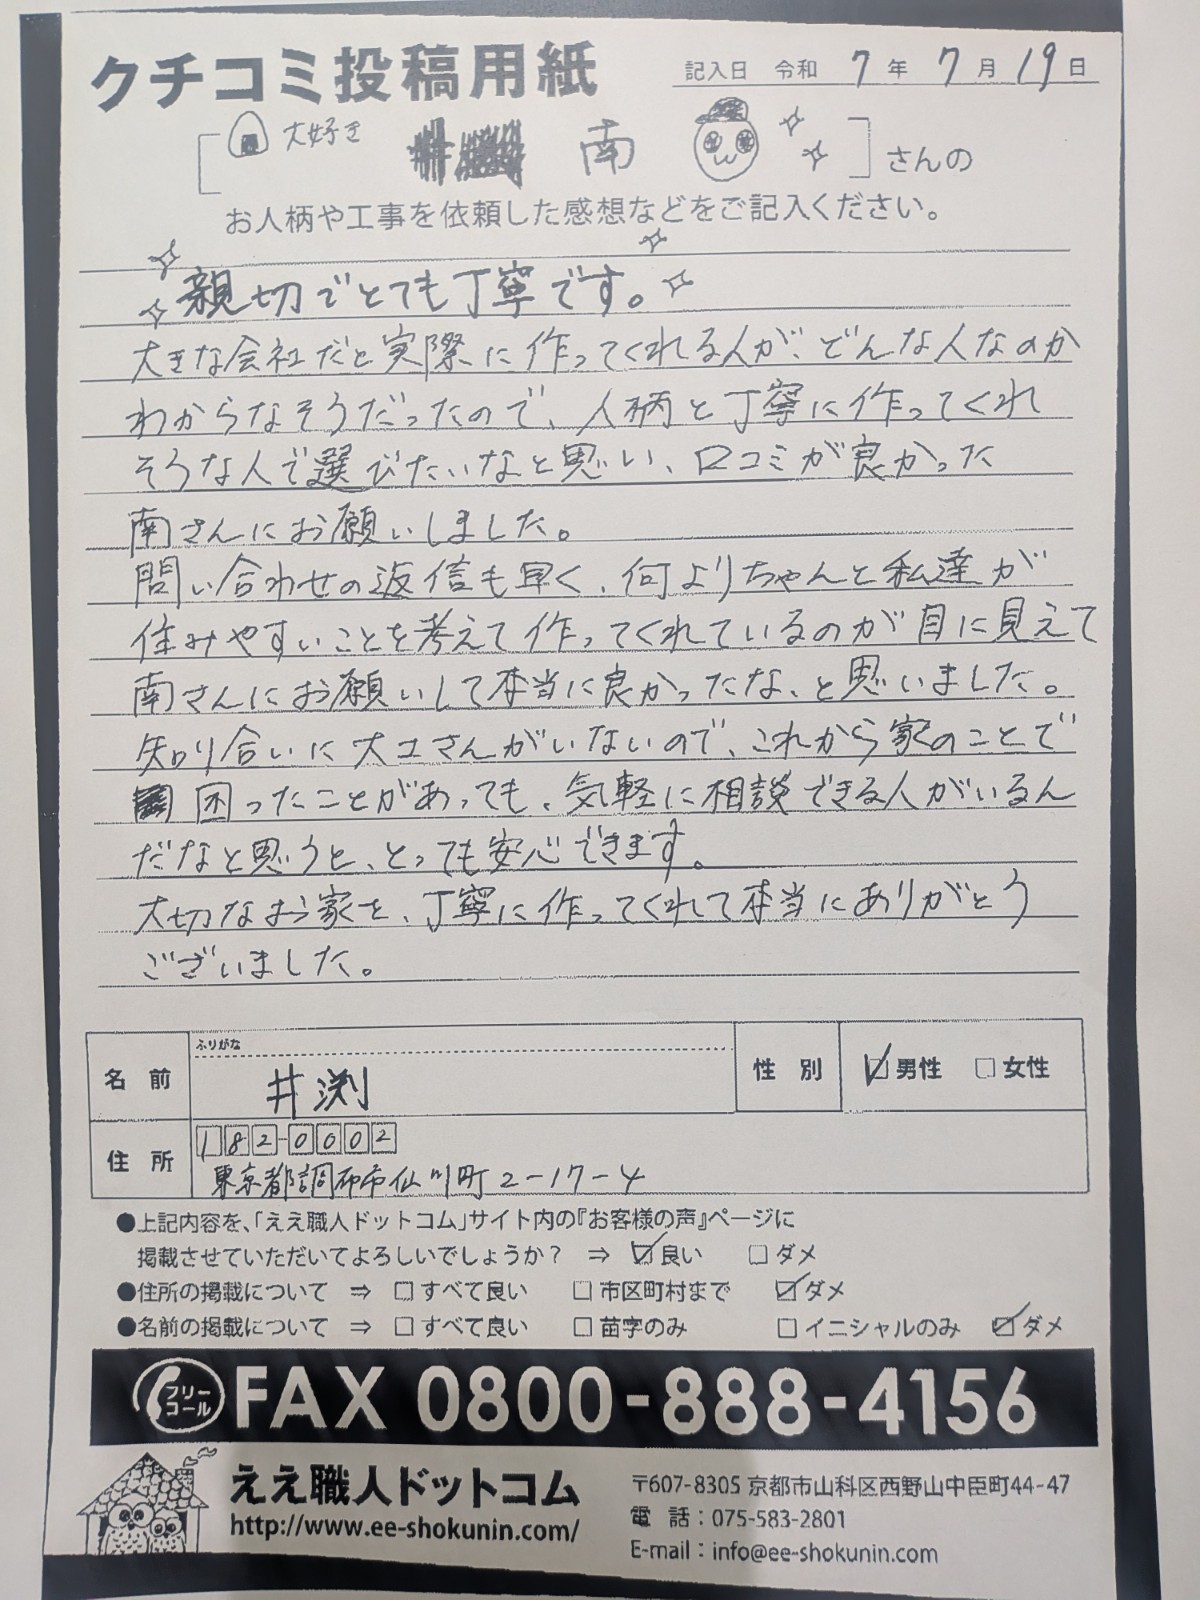 クチコミ投稿用紙
記入日 令和 7 年 7 月 19 日
大好き 南 さんの
お人柄や工事を依頼した感想などをご記入ください。
親切でとても丁寧です。
大きな会社だと実際に作ってくれる人が、どんな人なのか
わからなそうだったので、人柄と丁寧に作ってくれ
そうな人で選びたいなと思い、口コミが良かった
南さんにお願いしました。
問い合わせの返信も早く、何よりちゃんと私達が
住みやすいことを考えて作ってくれているのが目に見えて
南さんにお願いして本当に良かったな、と思いました。
知り合いに大工さんがいないので、これから家のことで
困ったことがあっても、気軽に相談できる人がいるん
だなと思うと、とっても安心できます。
大切なお家を、丁寧に作ってくれて本当にありがとう
ございました。
名前 ふりがな 井渕 性別 男性 女性
住所 182-0002
東京都調布市仙川町2-17-4
●上記内容を、「ええ職人ドットコム」サイト内の『お客様の声』ページに
掲載させていただいてよろしいでしょうか? ⇒ 良い ダメ
●住所の掲載について ⇒ すべて良い 市区町村まで ダメ
●名前の掲載について ⇒ すべて良い 苗字のみ イニシャルのみ ダメ
フリーコール FAX 0800-888-4156
ええ職人ドットコム
http://www.ee-shokunin.com/
〒607-8305 京都市山科区西野山中臣町44-47
電 話:075-583-2801
E-mail:info@ee-shokunin.com